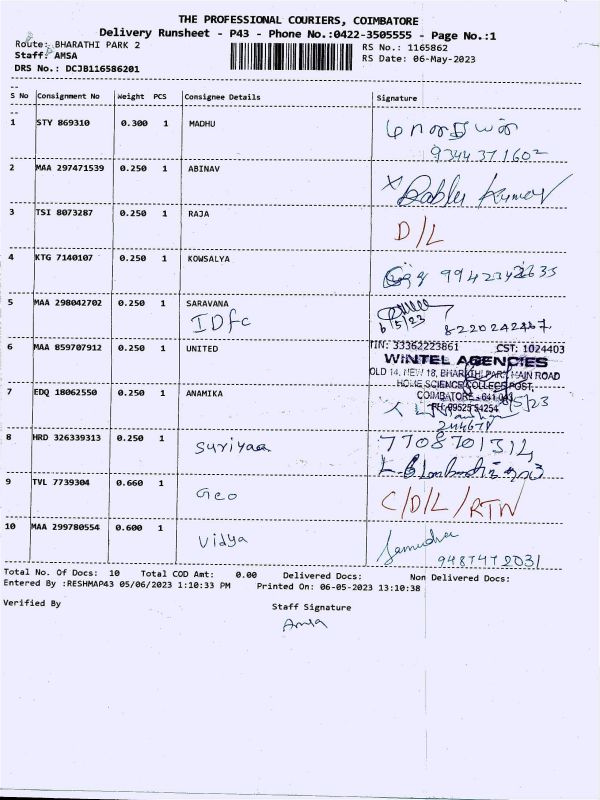 THE PROFESSIONAL COURIERS, COIMBATORE
Delivery Runsheet - P43 - Phone No.:0422-3505555 - Page No.:1
Route: BHARATHI PARK 2
RS No.: 1165862
Staff: AMSA
RS Date: 06-May-2023
DRS No.: DCJB116586201
S No Consignment No Weight PCS Consignee Details Signature
1 STY 869310 0.300 1 MADHU
9344371602
2 MAA 297471539 0.250 1 ABINAV
Kumar
3 TSI 8073287 0.250 1 RAJA
D/L
4 KTG 7140107 0.250 1 KOWSALYA
5 MAA 298042702 0.250 1 SARAVANA
IDfc
6/5/23 8220242467
6 MAA 859707912 0.250 1 UNITED
TIN: 33362223861 CST: 1024403
WINTEL AGENCIES
OLD 14, NEW 18, BHARATHI PARK MAIN ROAD
HOME SCIENCE COLLEGE POST,
COIMBATORE - 641 043
7 EDQ 18062550 0.250 1 ANAMIKA
8 HRD 326339313 0.250 1 suriyaa
7708701314
9 TVL 7739304 0.660 1 Geo
C/D/L/RTN
10 MAA 299780554 0.600 1 Vidya
9487472031
Total No. Of Docs: 10 Total COD Amt: 0.00 Delivered Docs: Non Delivered Docs:
Entered By :RESHMAP43 05/06/2023 1:10:33 PM Printed On: 06-05-2023 13:10:38
Verified By
Staff Signature
Amsa